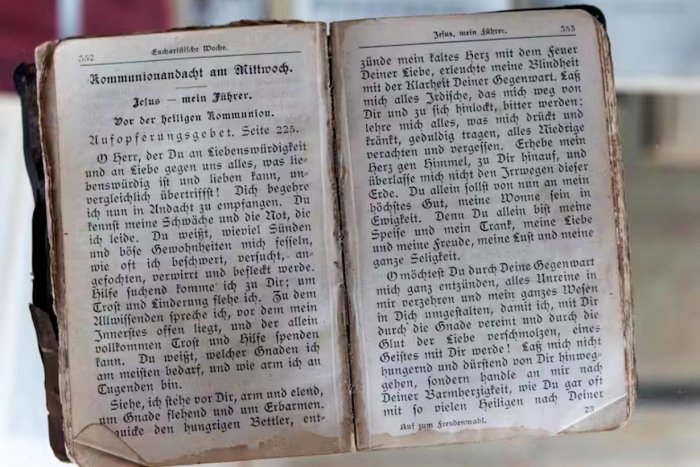 352 Eucharistische Woche.
Kommunionandacht am Mittwoch.
Jesus — mein Führer.
Vor der heiligen Kommunion.
Aufopferungsgebet. Seite 225.
O Herr, der Du an Liebenswürdigkeit
und an Liebe gegen uns alles, was lie-
benswürdig ist und lieben kann, un-
vergleichlich übertriffst! Dich begehre
ich nun in Andacht zu empfangen. Du
kennst meine Schwäche und die Not, die
ich leide. Du weißt, wieviel Sünden
und böse Gewohnheiten mich fesseln,
wie oft ich beschwert, versucht, an-
gefochten, verwirrt und befleckt werde.
Um Hilfe suchend komme ich zu Dir; um
Trost und Linderung flehe ich. Zu dem
Allwissenden spreche ich, vor dem mein
Innerstes offen liegt, und der allein
vollkommen Trost und Hilfe spenden
kann. Du weißt, welcher Gnaden ich
am meisten bedarf, und wie arm ich an
Tugenden bin.
Siehe, ich stehe vor Dir, arm und elend,
um Gnade flehend und um Erbarmen.
quicke den hungrigen Bettler, ent-
Jesus, mein Führer. 353
zünde mein kaltes Herz mit dem Feuer
Deiner Liebe, erleuchte meine Blindheit
mit der Klarheit Deiner Gegenwart. Laß
mich alles Irdische, das mich weg von
Dir und zu sich hinlockt, bitter werden;
lehre mich alles, was mich drückt und
kränkt, geduldig tragen, alles Niedrige
verachten und vergessen. Erhebe mein
Herz gen Himmel, zu Dir hinauf, und
überlasse mich nicht den Irrwegen dieser
Erde. Du allein sollst von nun an mein
höchstes Gut, meine Wonne sein in
Ewigkeit. Denn Du allein bist meine
Speise und mein Trank, meine Liebe
und meine Freude, meine Lust und meine
ganze Seligkeit.
O möchtest Du durch Deine Gegenwart
mich ganz entzünden, alles Unreine in
mir verzehren und mein ganzes Wesen
in Dich umgestalten, damit ich, mit Dir
durch die Gnade vereint und durch die
Glut der Liebe verschmolzen, eines
Geistes mit Dir werde! Laß mich nicht
hungernd und dürstend von Dir hinweg-
gehen, sondern handle an mir nach
Deiner Barmherzigkeit, wie Du gar oft
mit so vielen Heiligen nach Deiner
Auf zum Freudenmahl. 23